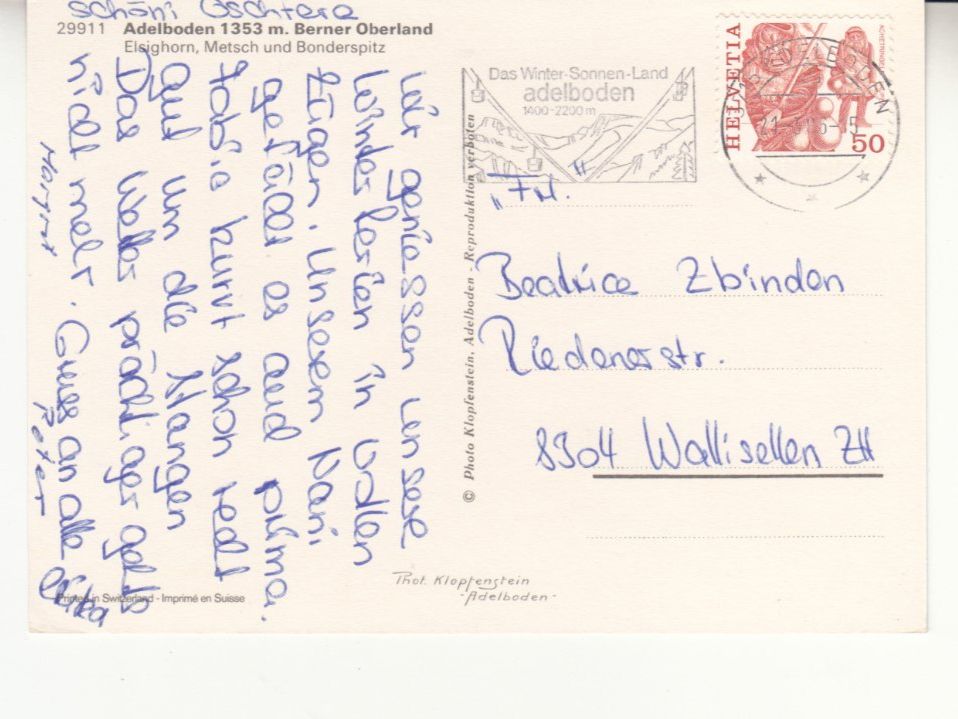 schöni Oschtere
29911 Adelboden 1353 m. Berner Oberland
Elsighorn, Metsch und Bonderspitz
Wir geniessen unsere
Winterferien in vollen
Zügen. Unserem Nani
gefällt es auch prima.
Tobie kurvt schon recht
gut um die Stangen
Das Wetter prächtiger gehts
nicht mehr. Gruss an alle
Margrit Peter
Printed in Switzerland - Imprimé en Suisse
© Photo Klopfenstein, Adelboden - Reproduktion verboten
Phot. Klopfenstein
- Adelboden -
Das Winter-Sonnen-Land
adelboden
1400-2200 m
HELVETIA
50
ADELBODEN
Beatrice Zbinden
Riedenerstr.
8304 Wallisellen ZH